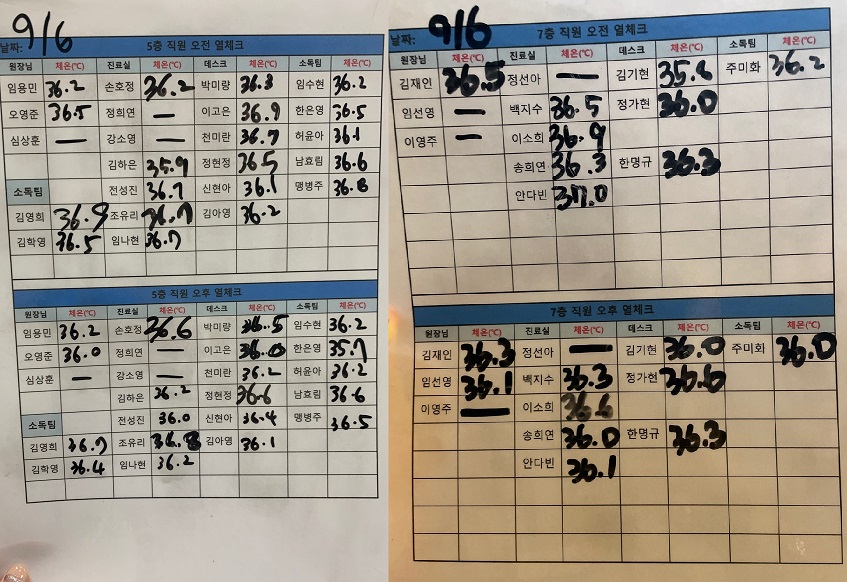 날짜: 9/6 5층 직원 오전 열체크
원장님 체온(℃) 진료실 체온(℃) 데스크 체온(℃) 소독팀 체온(℃)
임용민 36.2 손호정 36.2 박미량 36.3 임수현 36.2
오영준 36.5 정희연 — 이고은 36.9 한은영 36.5
심상훈 — 강소영 — 천미란 36.7 허윤아 36.1
김하은 35.9 정현정 36.5 남효림 36.6
소독팀 전성진 36.7 신현아 36.1 맹병주 36.8
김영희 36.9 조유리 36.7 김아영 36.2
김학영 36.5 임나현 36.7
5층 직원 오후 열체크
원장님 체온(℃) 진료실 체온(℃) 데스크 체온(℃) 소독팀 체온(℃)
임용민 36.2 손호정 36.6 박미량 36.5 임수현 36.2
오영준 36.0 정희연 — 이고은 36.0 한은영 35.7
심상훈 — 강소영 — 천미란 36.2 허윤아 36.2
김하은 36.2 정현정 36.6 남효림 36.6
소독팀 전성진 36.0 신현아 36.4 맹병주 36.5
김영희 36.7 조유리 36.8 김아영 36.1
김학영 36.4 임나현 36.2
날짜: 9/6 7층 직원 오전 열체크
원장님 체온(℃) 진료실 체온(℃) 데스크 체온(℃) 소독팀 체온(℃)
김재인 36.5 정선아 — 김기현 35.8 주미화 36.2
임선영 — 백지수 36.5 정가현 36.0
이영주 — 이소희 36.9
송희연 36.3 한명규 36.3
안다빈 37.0
7층 직원 오후 열체크
원장님 체온(℃) 진료실 체온(℃) 데스크 체온(℃) 소독팀 체온(℃)
김재인 36.3 정선아 — 김기현 36.0 주미화 36.0
임선영 36.1 백지수 36.3 정가현 36.6
이영주 — 이소희 36.6
송희연 36.0 한명규 36.3
안다빈 36.1